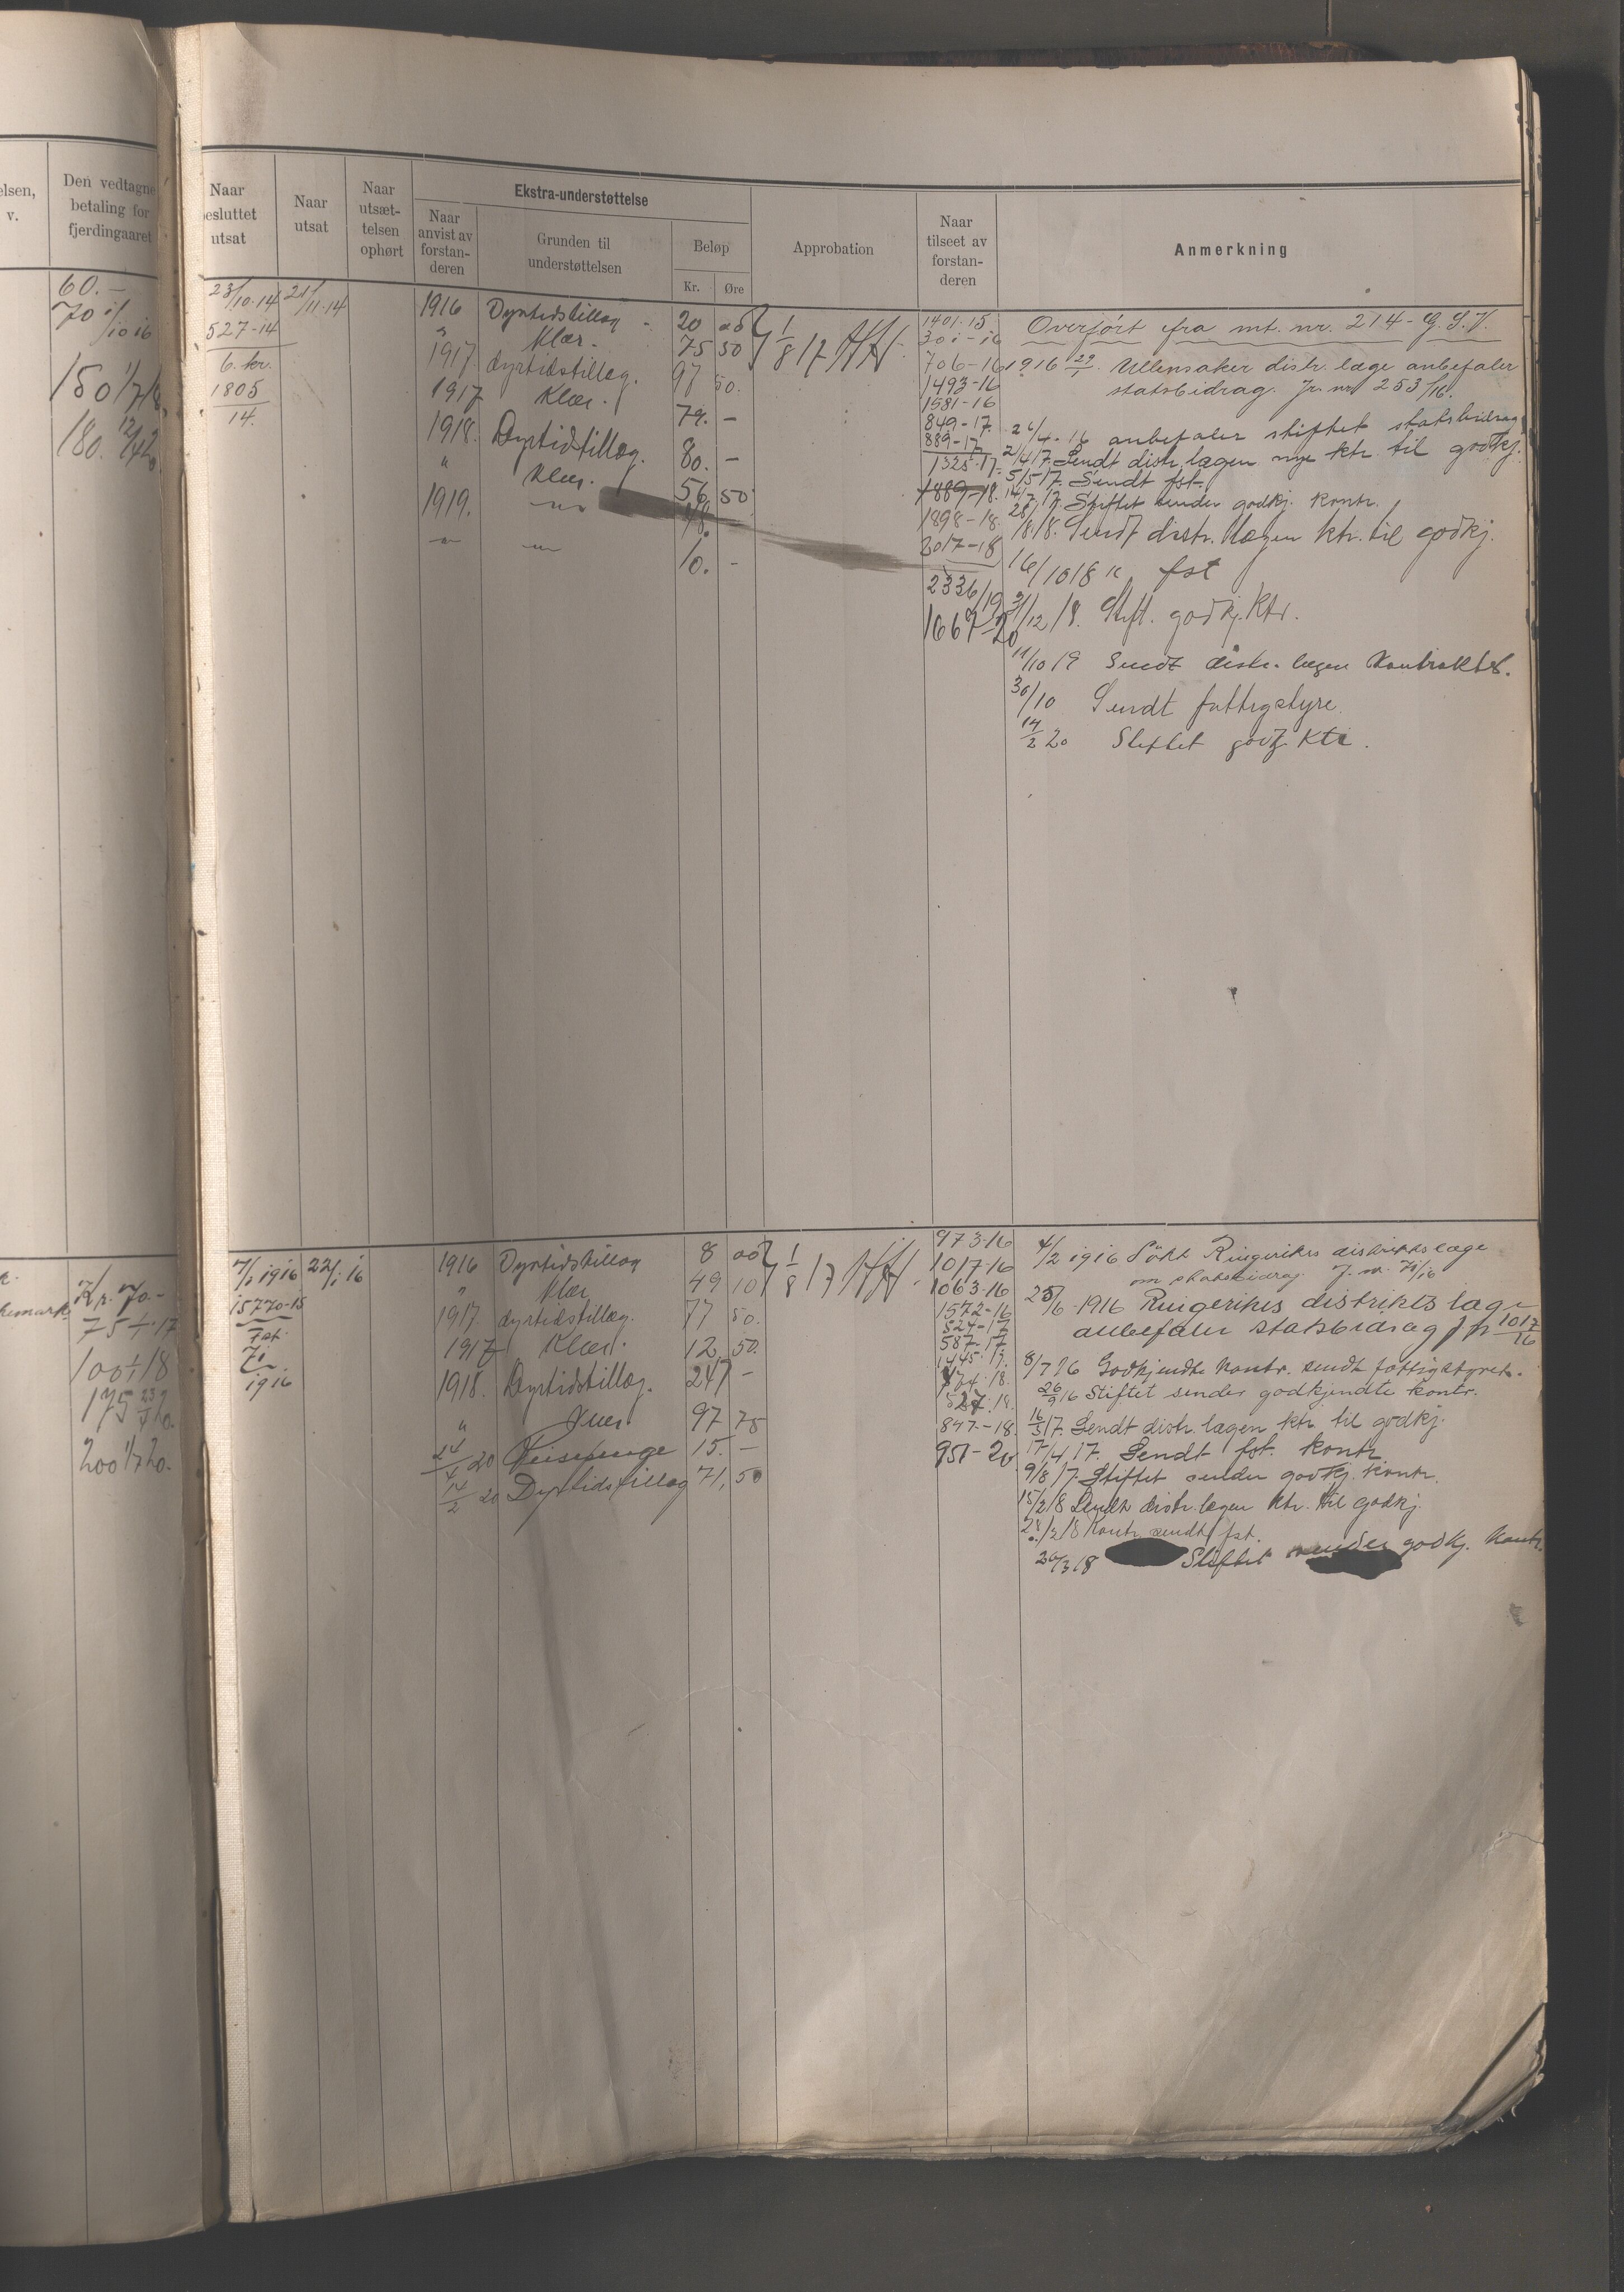 elsen,
v.
Den vedtagne
betaling for
fjerdingaaret
Naar
besluttet
utsat
Naar
utsat
Naar
utsæt-
telsen
ophørt
Ekstra-understøttelse
Naar
anvist av
forstan-
deren
Grunden til
understøttelsen
Beløp
Kr.
Øre
Approbation
Naar
tilseet av
forstan-
deren
Anmerkning
60.-
70 1/10 16
150 1/7 18.
180.
23/10-14
527-14
6. kr.
1805
14.
21/11-14
1916 Dyrtidstillæg - 20 00
" Klær. 75 50
1917 dyrtidstillæg. 97 50.
1917 Klær. 79. -
1918. Dyrtidstillæg. 80. -
" Klær. 56 50
1919. -"- 48.
-"- -"- 10. -
1/8 17
1401-15
301-16
706-16
1493-16
1581-16
849-17.
889-17
1325-17.
1889-18.
1898-18.
2017-18
2336/19
1667-20
Overført fra mt. nr. 214- G. S. V.
1916 29/1. Ullensaker distr. læge anbefaler
statsbidrag. Jr. nr 253/16.
26/4-16 anbefaler stiftet statsbidrag
2/4 17. Sendt distr. lægen nye ktr. til godkj.
5/5 17. Sendt fst.
14/7 17. Stiftet sender godkj. kontr.
28/8 18. Sendt distr. lægen ktr. til godkj.
16/10 18 " fst
31/12 18. Stift. godkj. Ktr.
11/10 19 Sendt distr. lægen Kontrakter.
30/10 Sendt fattigstyre.
14/2 20 Stiftet godkj. Ktr.
70.-
75 1/1 17
100 1/1 18
175
200 1/7 20.
7/1 1916
15770-15
Fst.
71
1916
22/1 16
1916 Dyrtidstillæg 8 00
" Klær 49 10
1917. dyrtidstillæg. 77 50.
1917 Klær. 12 50.
1918. Dyrtidstillæg. 247 -
" Klær 97 75
24/4 20 Reisepenge 15. -
14/2 20 Dyrtidstillæg 71, 50
1/8 17
973-16
1017-16
1063-16
1572-16
524-17
587-17
1445-17.
174-18.
527-18.
847-18.
951-20
4/2 1916 Søkt Ringerikes distriktslæge
om statsbidrag. J. nr. 71/16
25/6-1916 Ringerikes distrikts læge
anbefaler statsbidrag J nr 1017/16
8/7 16 Godkjendte kontr. sendt fattigstyret.
26/9 16 Stiftet sender godkjendte kontr.
16/3 17. Sendt distr. lægen ktr. til godkj.
17/4 17. Sendt fst. kontr.
9/8 17. Stiftet sender godkj. kontr.
15/2 18 Sendt distr. lægen ktr. til godkj.
28/2 18 Kontr. sendt fst.
20/3 18 Stiftet sender godkj. Kontr.